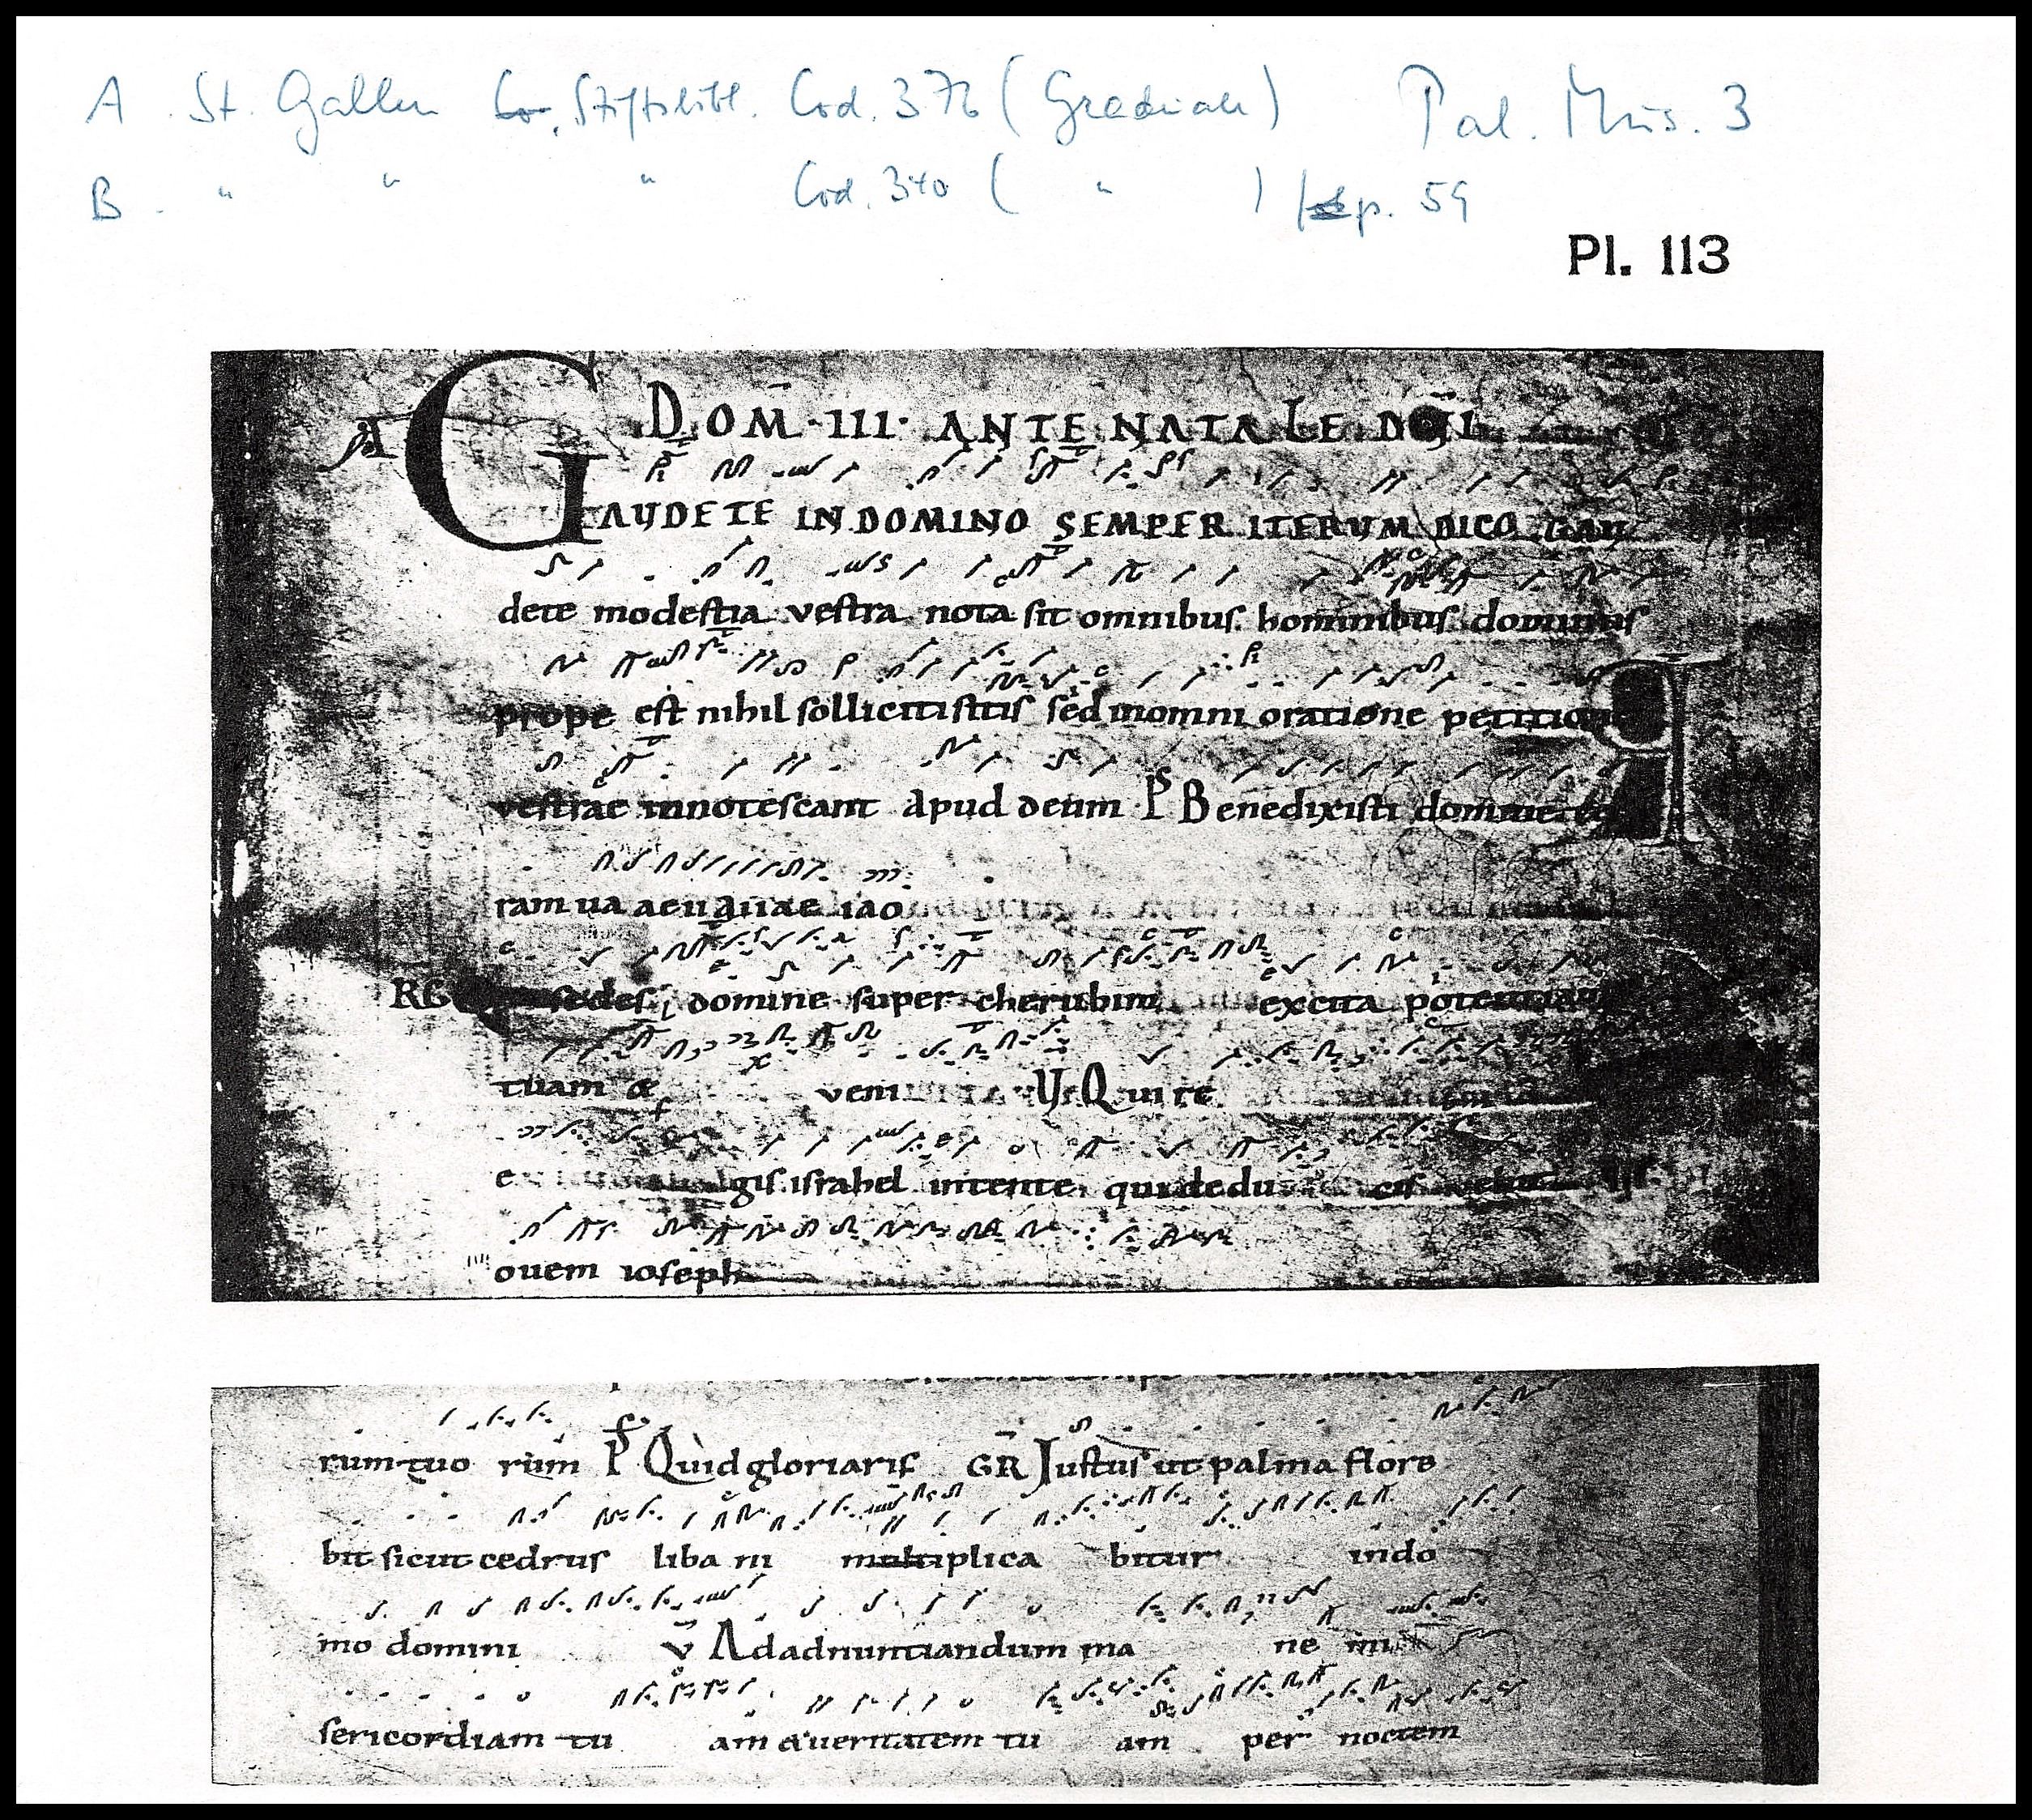 A. St. Gallen Co, Stiftsbibl. Cod. 376 (Graduale) Pal. Mus. 3
B. " " " Cod. 340 ( " ) p. 59
Pl. 113
A
DOM̄·III· ANTE NATALE DN̄I
GAUDETE IN DOMINO SEMPER ITERUM DICO GAU
dete modestia vestra nota sit omnibus hominibus dominus
prope est nihil solliciti sitis sed in omni oratione petitiones
vestrae innotescant apud deum Ps Benedixisti domine
ram ua aeuaiiae iao
RG sedes domine super cherubim excita potentiam
tuam & veni V. Qui re
e gis israhel intente qui dedu cis
ouem ioseph
rum tuo rum P Quid gloriaris GR Iustus ut palma flore
bit sicut cedrus liba ni multiplica bitur in do
mo domini v̄ Ad adnuntiandum ma ne mi
sericordiam tu am & ueritatem tu am per noctem